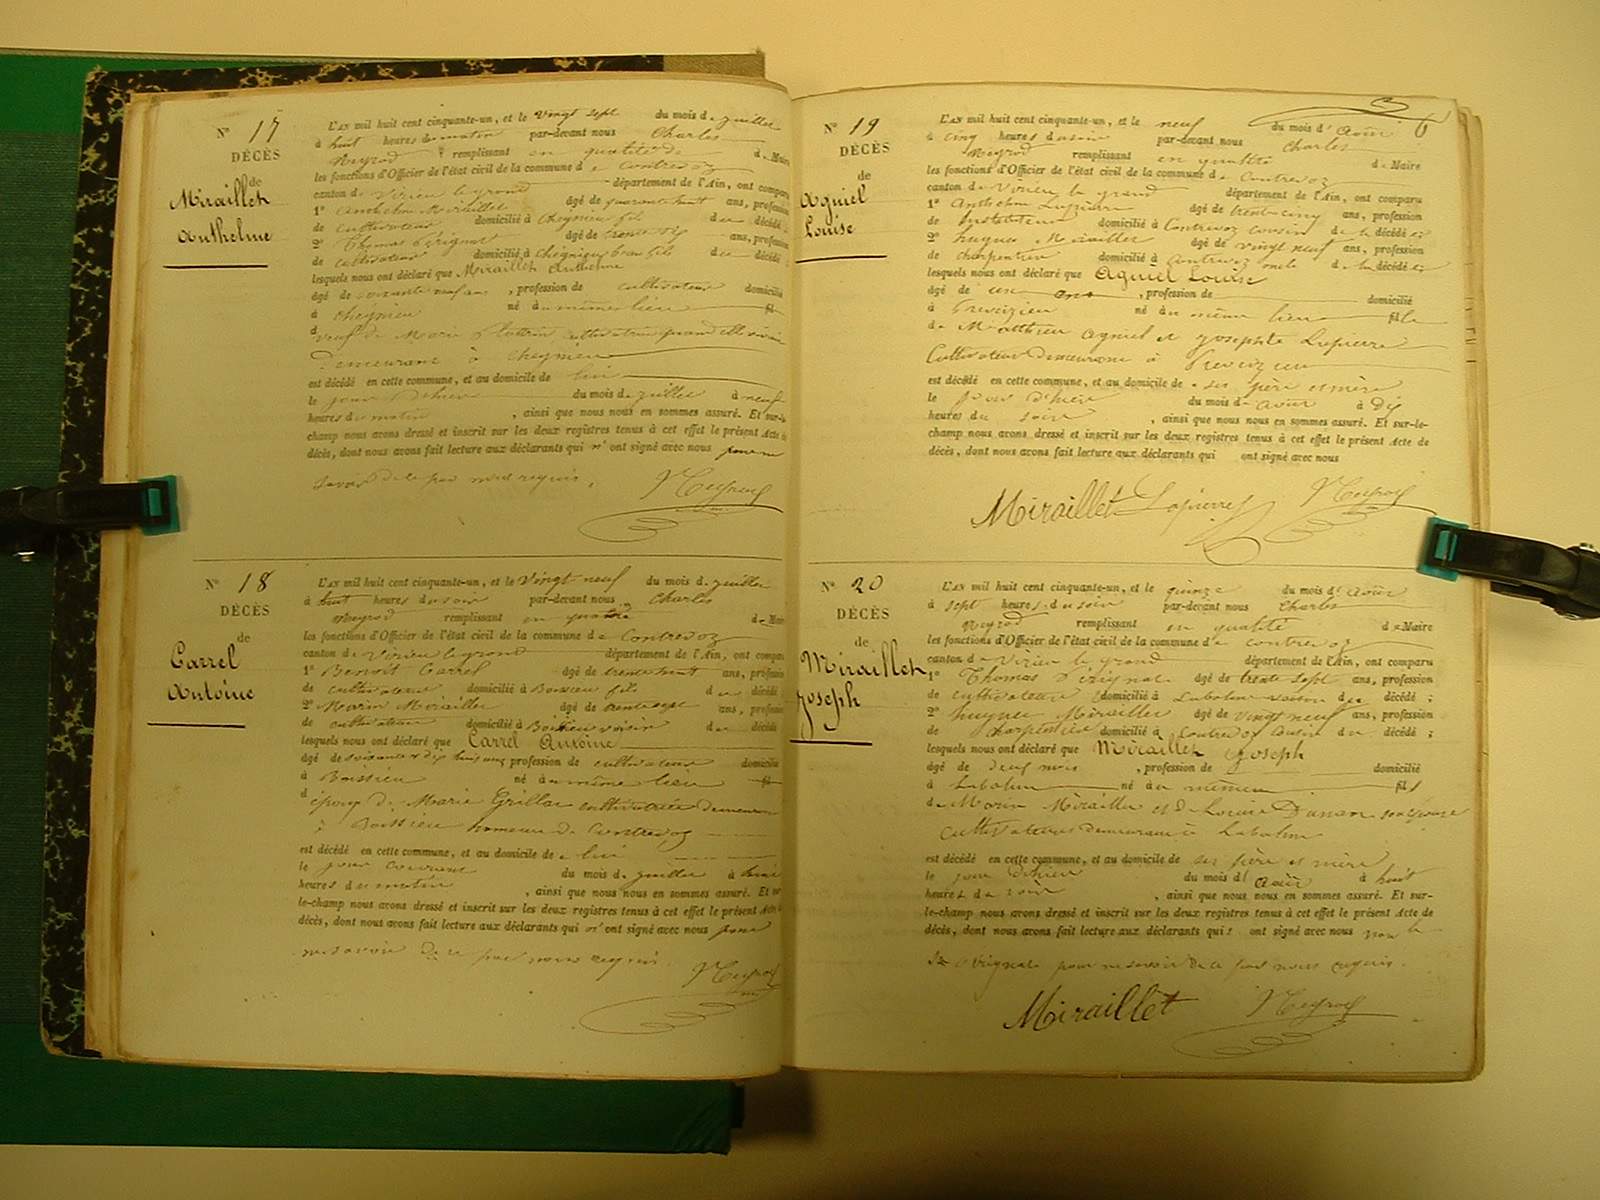 N° 17
DÉCÈS
de
Miraillet
Anthelme
L'AN mil huit cent cinquante-un, et le vingt sept du mois de juillet
à huit heures du matin par-devant nous Charles
Neyrod remplissant en qualité de Maire
les fonctions d'Officier de l'état civil de la commune de Contrevoz
canton de Virieu le grand département de l'Ain, ont comparu
1° Anthelme Miraillet âgé de quarante huit ans, profession
de cultivateur domicilié à Cheignieu fils du décédé
2° Thomas âgé de trente ans, profession
de cultivateur domicilié à Cheignieu beau fils du décédé
lesquels nous ont déclaré que Miraillet Anthelme
âgé de soixante neuf ans, profession de cultivateur domicilié
à Cheignieu né au même lieu fil
veuf de Marie cultivatrice quand elle vivait
Demeurant à Cheignieu
est décédé en cette commune, et au domicile de lui
le jour d'hier du mois de juillet à neuf
heures du matin, ainsi que nous nous en sommes assuré. Et sur-le-
champ nous avons dressé et inscrit sur les deux registres tenus à cet effet le présent Acte de
décès, dont nous avons fait lecture aux déclarants qui n'ont signé avec nous pour ne
savoir de ce par nous requis.
Neyrod
N° 18
DÉCÈS
de
Carrel
Antoine
L'AN mil huit cent cinquante-un, et le vingt neuf du mois de juillet
à huit heures du soir par-devant nous Charles
Neyrod remplissant en qualité de Maire
les fonctions d'Officier de l'état civil de la commune de Contrevoz
canton de Virieu le grand département de l'Ain, ont comparu
1° Benoit Carrel âgé de trente huit ans, profession
de cultivateur domicilié à Boissieu fils du décédé
2° Marin Miraillet âgé de trente sept ans, profession
de cultivateur domicilié à Boissieu voisin du décédé
lesquels nous ont déclaré que Carrel Antoine
âgé de soixante et dix huit ans profession de cultivateur domicilié
à Boissieu né au même lieu fil
époux de Marie Grillat cultivatrice demeurant
à Boissieu hameau de Contrevoz
est décédé en cette commune, et au domicile de lui
le jour courant du mois de juillet à huit
heures du matin, ainsi que nous nous en sommes assuré. Et sur-
le-champ nous avons dressé et inscrit sur les deux registres tenus à cet effet le présent Acte de
décès, dont nous avons fait lecture aux déclarants qui n'ont signé avec nous pour
ne savoir de ce par nous requis.
Neyrod
6
N° 19
DÉCÈS
de
Agniel
Louise
L'AN mil huit cent cinquante-un, et le neuf du mois d'Août
à cinq heures du soir par-devant nous Charles
Neyrod remplissant en qualité de Maire
les fonctions d'Officier de l'état civil de la commune de Contrevoz
canton de Virieu le grand département de l'Ain, ont comparu
1° Anthelme Lapierre âgé de trente cinq ans, profession
de Instituteur domicilié à Contrevoz cousin de la décédée;
2° hugues Miraillet âgé de vingt neuf ans, profession
de charpentier domicilié à Contrevoz oncle de la décédée;
lesquels nous ont déclaré que Agniel Louise
âgé de un ans, profession de domicilié
à Preveizieu né au même lieu fille
de Matthieu Agniel et Josephte Lapierre
Cultivateurs demeurant à Preveizieu
est décédé en cette commune, et au domicile de ses père et mère
le jour d'hier du mois d'Août à dix
heures du soir, ainsi que nous nous en sommes assuré. Et sur-le-
champ nous avons dressé et inscrit sur les deux registres tenus à cet effet le présent Acte de
décès, dont nous avons fait lecture aux déclarants qui ont signé avec nous
Miraillet Lapierre Neyrod
N° 20
DÉCÈS
de
Miraillet
Joseph
L'AN mil huit cent cinquante-un, et le quinze du mois d'Août
à sept heures du soir par-devant nous Charles
Neyrod remplissant en qualité de Maire
les fonctions d'Officier de l'état civil de la commune de Contrevoz
canton de Virieu le grand département de l'Ain, ont comparu
1° Thomas âgé de trente sept ans, profession
de cultivateur domicilié à Labalme voisin du décédé;
2° hugues Miraillet âgé de vingt neuf ans, profession
de charpentier domicilié à Contrevoz cousin du décédé;
lesquels nous ont déclaré que Miraillet Joseph
âgé de deux mois, profession de domicilié
à Labalme né au même lieu fils
de Marin Miraillet et de Louise son épouse
Cultivateurs demeurant à Labalme
est décédé en cette commune, et au domicile de ses père et mère
le jour d'hier du mois d'Août à huit
heures du soir, ainsi que nous nous en sommes assuré. Et sur-
le-champ nous avons dressé et inscrit sur les deux registres tenus à cet effet le présent Acte de
décès, dont nous avons fait lecture aux déclarants qui ont signé avec nous non le
pour ne savoir de ce par nous requis.
Miraillet Neyrod